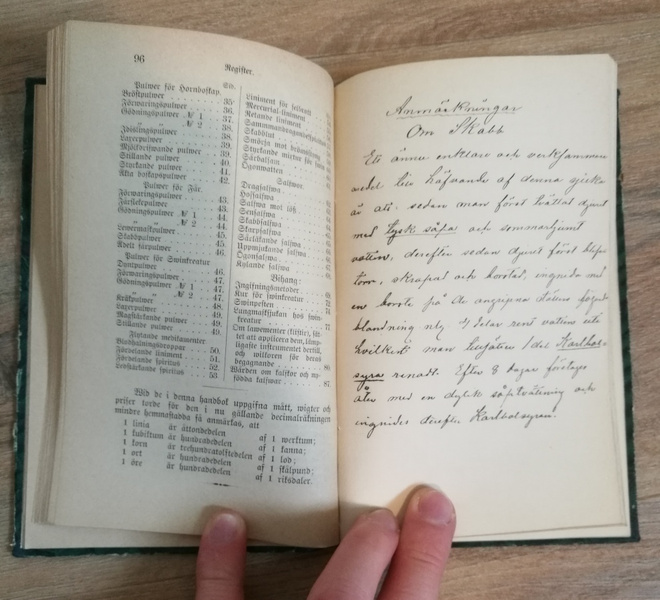 96
Register.
Sid.
Pulwer för Hornboskap.
Bröstpulwer 35
Förwaringspulwer 36.
Gödningspulwer № 1 37.
„ № 2 38.
Idislingspulwer 38.
Laxerpulwer 39.
Mjölkdrifwande pulwer 39.
Stillande pulwer 40.
Styrkande pulwer 41.
Äkta boskapspulwer 42.
Pulwer för Får.
Förwaringspulwer 43.
Fårlekepulwer 43.
Gödningspulwer № 1 44.
„ № 2 44.
Lowermaskpulwer 45.
Skabbpulwer 45.
Ädelt fårpulwer 46.
Pulwer för Swinkreatur
Duntpulwer 46.
Förwaringspulwer 46.
Gödningspulwer № 1 47.
„ № 2 47.
Kräkpulwer 48.
Laxerpulwer 48.
Magstärkande pulwer 49.
Stillande pulwer 49.
Flytande medikamenter
Blodstillningsdroppar 50.
Fördelande liniment 51.
Fördelande spiritus 52.
Lodstärkande spiritus 53
Liniment för
Mercurial-liniment
Retande liniment
Skabblut
Smörja mot
Styrkande
Sårbalsam
Ögonwatten
Salwor.
Dragsalwa
Hofsalwa
Salwa mot löss
Senesalwa
Skabbsalwa
Skorpsalwa
Sårläkande salwa
Uppmjukande salwa
Ögonsalwa
Kylande salwa
Bihang:
Ingifningsmetoder 69
Kur för swinkreatur 72
Swinpesten 74
Lungmaskssjukan hos swin-
kreatur 77
Om lawementer (klistir), för-
tet att applicera dem,
ligaste instrumentet dertill,
och wilkoren för deras
begagnande 80
Wården om kalfkor och ny-
födda kalfwar 87
Wid de i denna handbok uppgifna mått, wigter och
priser torde för den i nu gällande decimalräkningen
mindre hemmastadda få anmärkas, att
1 linia är åttondedelen af 1 werktum;
1 kubiktum är hundradedelen af 1 kanna;
1 korn är trehundratolftedelen af 1 lod;
1 ort är hundradedelen af 1 skålpund;
1 öre är hundradedelen af 1 riksdaler.
Anmärkningar
Om Skabb
Ett ännu enklare och verksammare
medel till häfvande af denna sjuk-
är att: sedan man först tvättat djuret
med tysk såpa och sommarljumt
vatten, derefter sedan djuret först blifvit
torr, skrapat och borstat, ingnida med
en borste på de angripna ställena följande
blandning nlg. 4 delar rent vatten uti
hvilket man tillsätter 1 del Karbol-
syra renadt. Efter 8 dagar företages
åter med en dylik såptvättning och
ingnides derefter Karbolsyran.